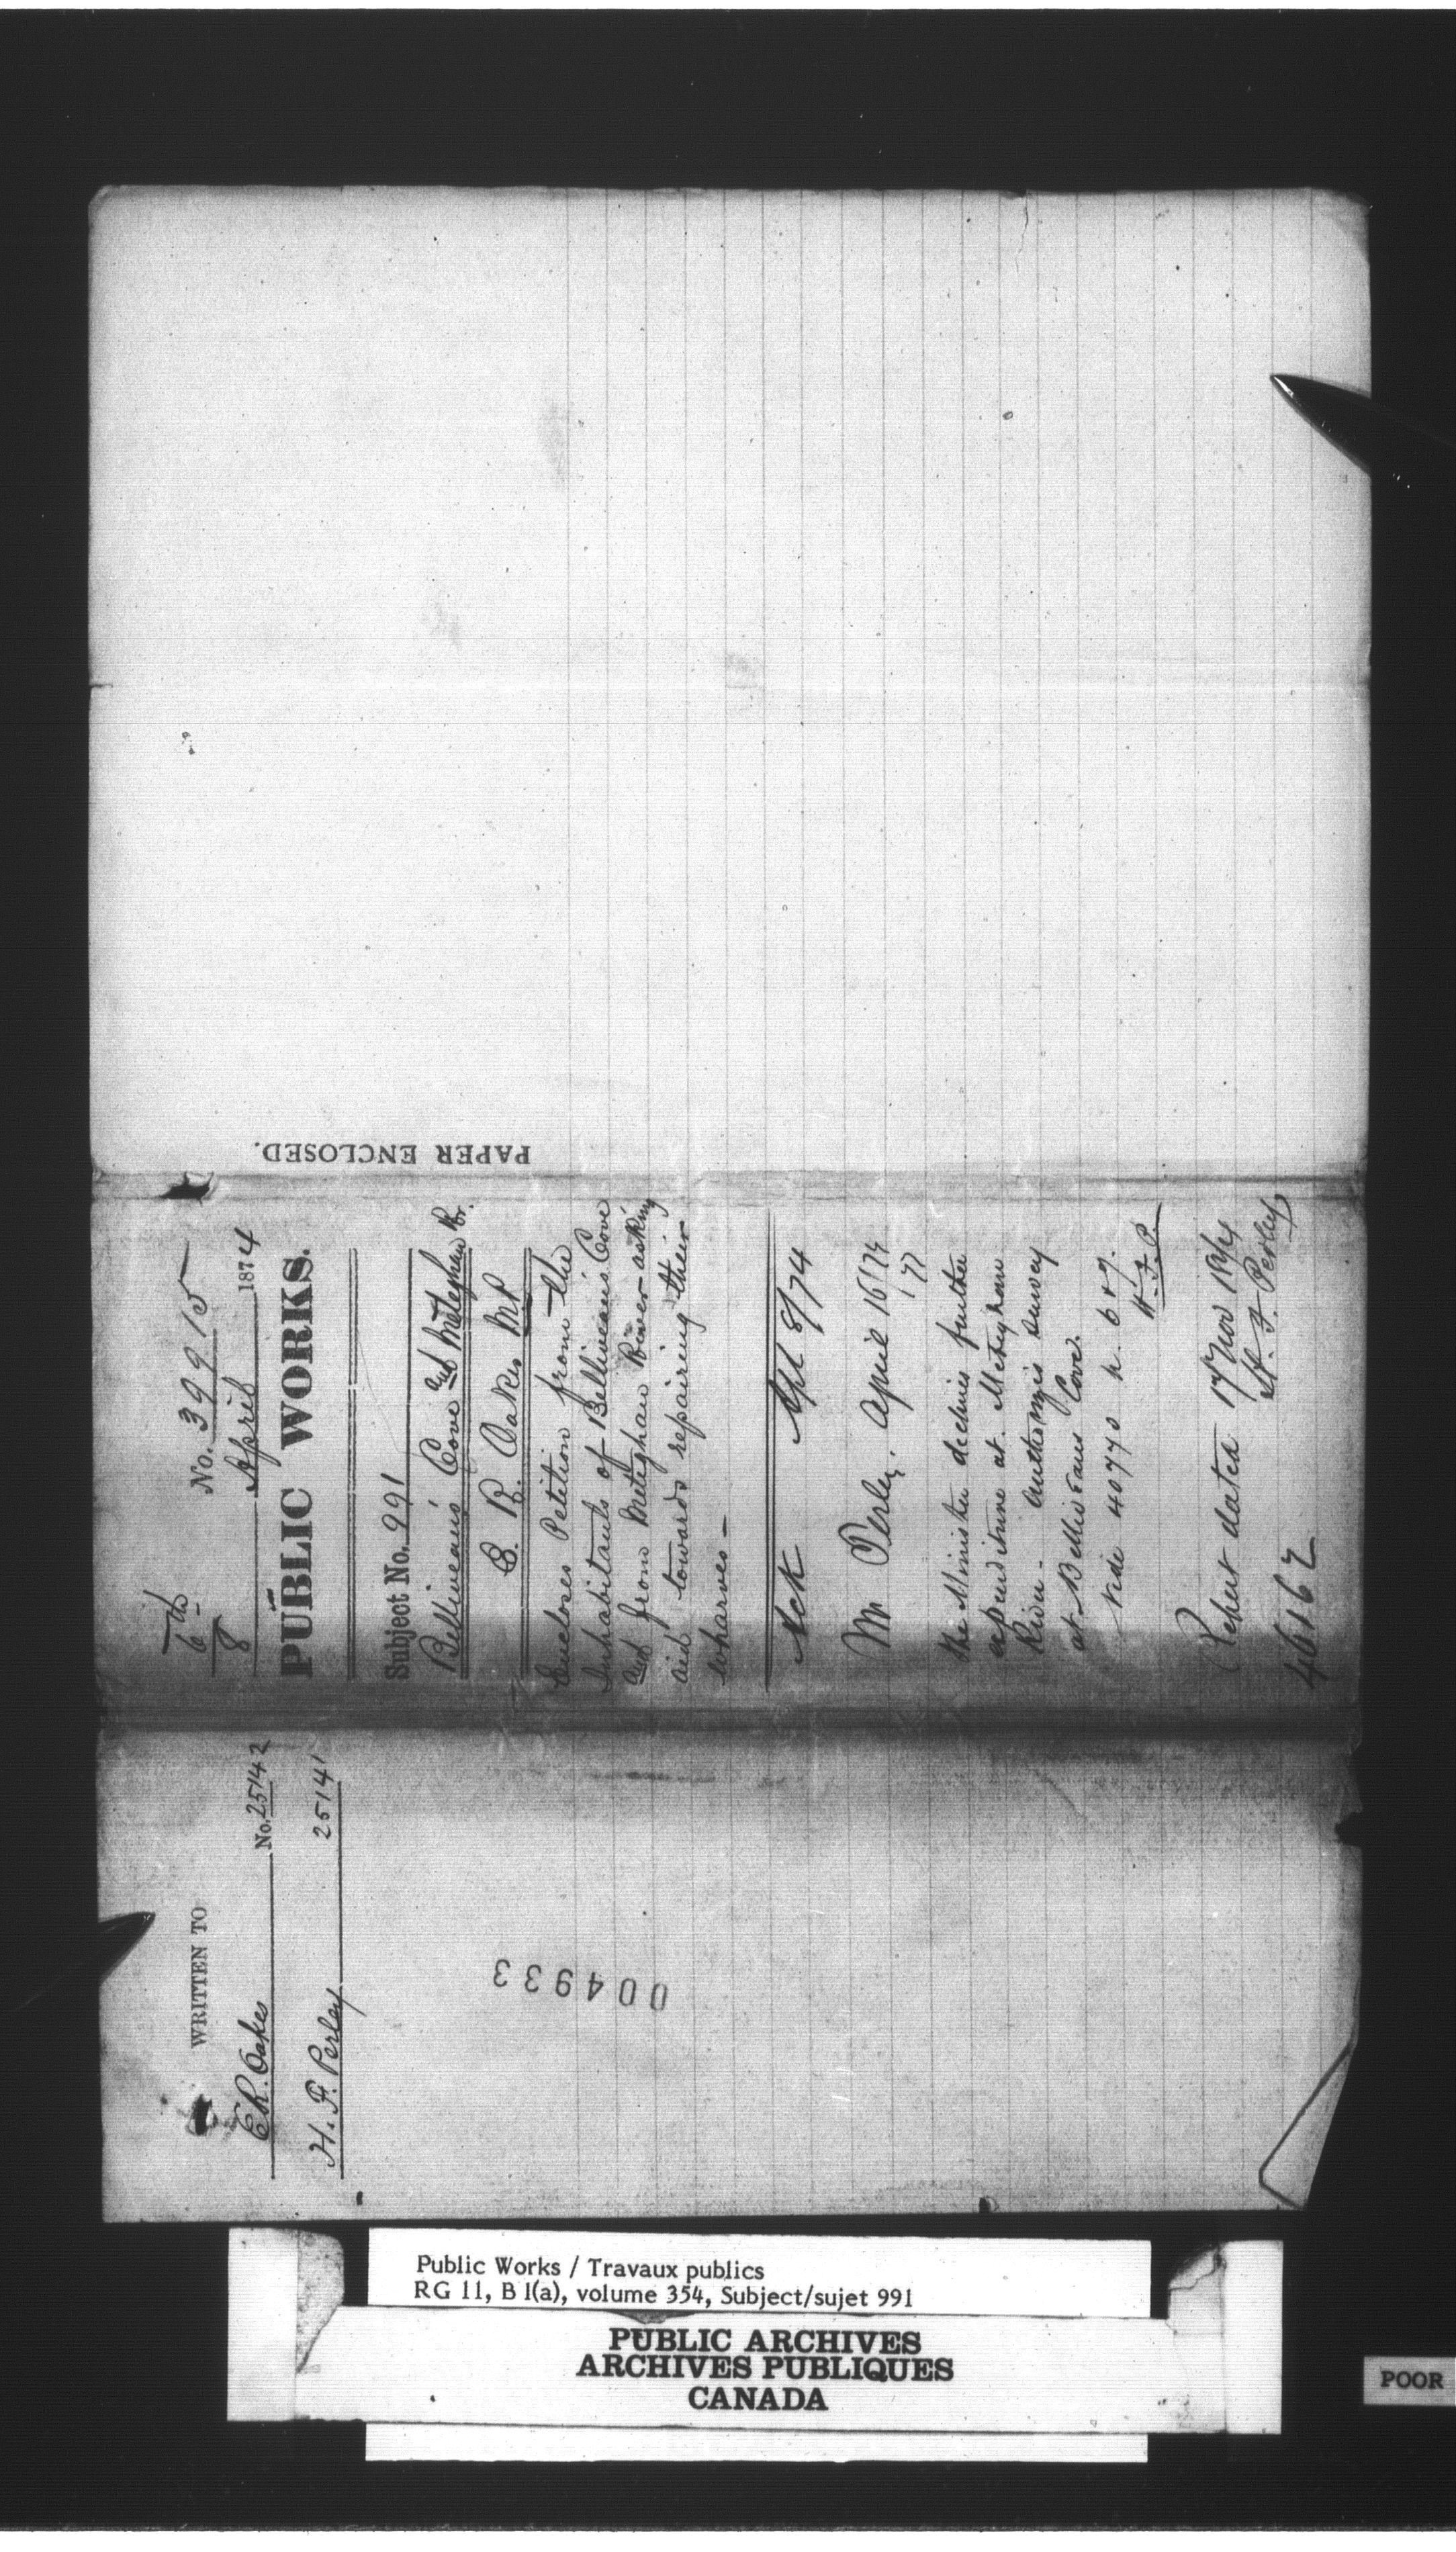 No. 39915
6th
8
April 1874
PUBLIC WORKS.
Subject No. 991
Belliveau's Cove and Meteghan Rr.
E. R. Oakes MP
Encloses Petition from the
Inhabitants of Belliveau's Cove
and from Meteghan River asking
aid towards repairing their
wharves -
Ack Apl 8/74
Mr Perley. April 16/74
The Minister declines further
expenditure at Meteghan
River - authorizes survey
at Belliveaus Cove.
Vide 40770
H.F.P.
Report dated 17 Nov 1874
H. F. Perley
46162
PAPER ENCLOSED.
WRITTEN TO
E R. Oakes No. 25142
H. F. Perley 25141
004933
Public Works / Travaux publics
RG 11, B 1(a), volume 354, Subject/sujet 991
PUBLIC ARCHIVES
ARCHIVES PUBLIQUES
CANADA
POOR